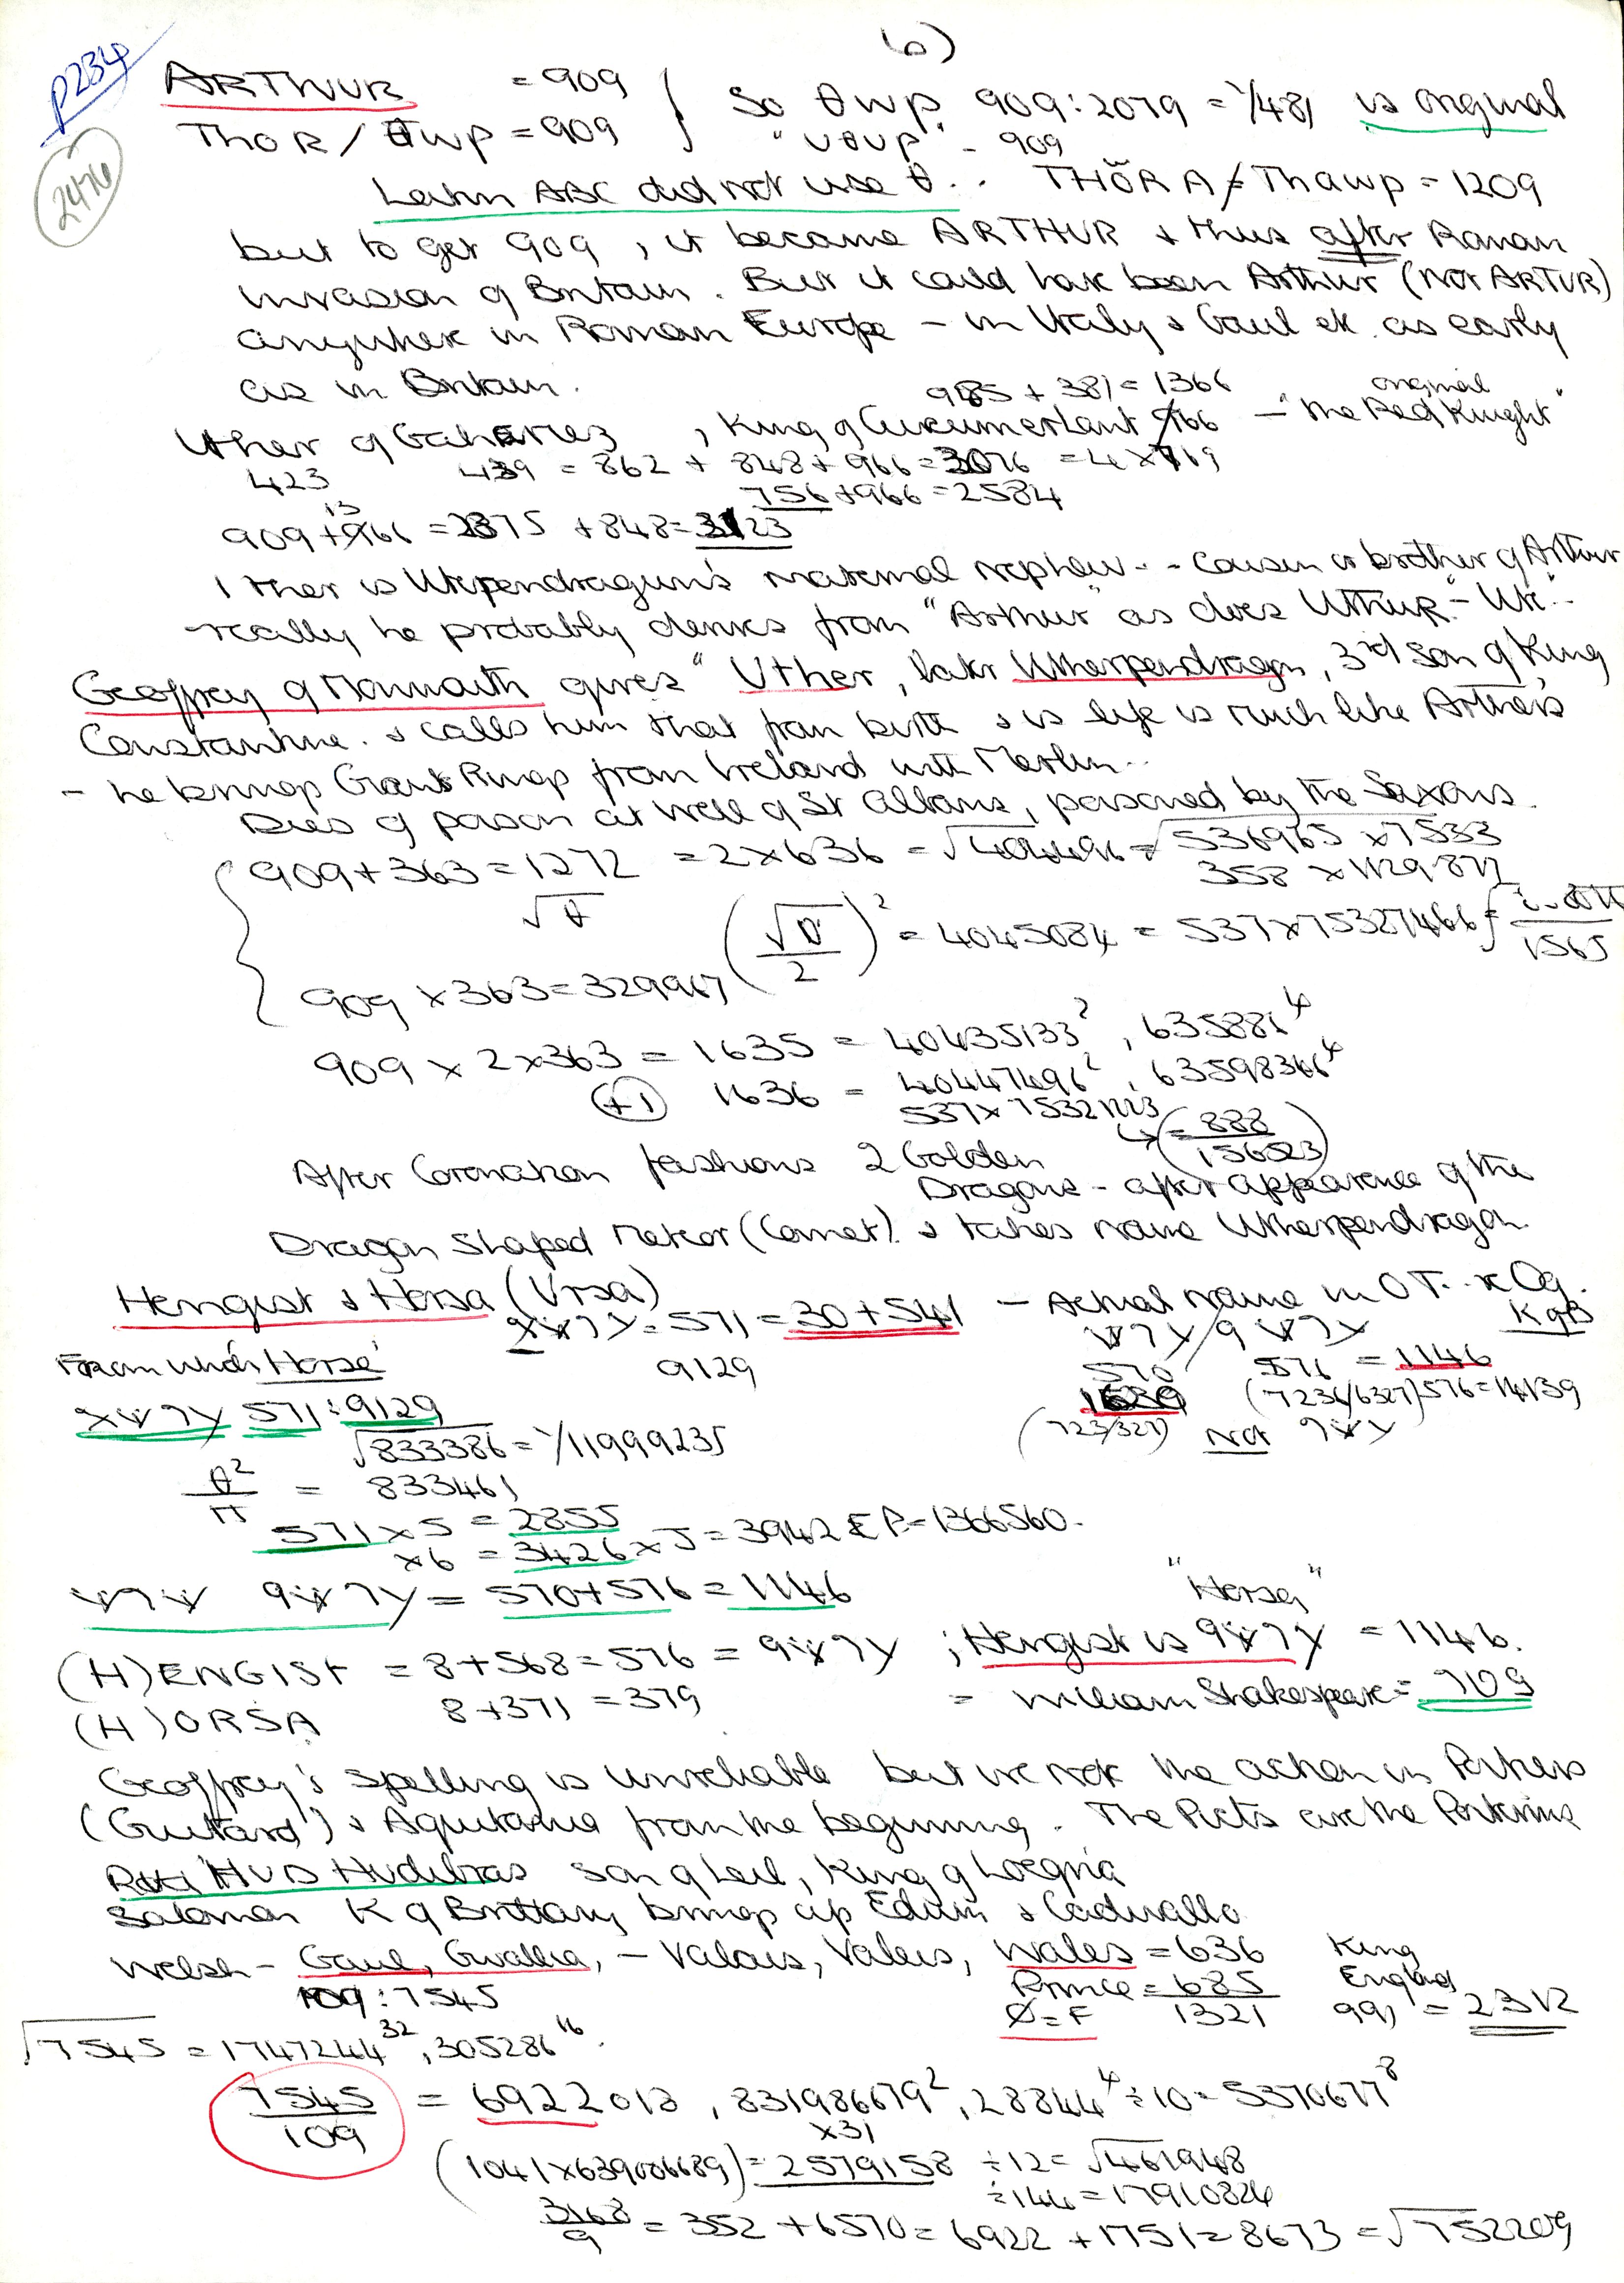 6)
P234
2476
ARTHUR = 909 } So θwp 909:2079 = 1/481 is original
THOR / θwp = 909 "UθUP" = 909
Latin ABC did not use θ.. THŎRA ≠ Thawp = 1209
but to get 909, it became ARTHUR & thus after Roman
invasion of Britain. But it could have been Arthur (not ARTUR)
anywhere in Roman Europe – in Italy & Gaul etc. as early
as in Britain.
985 + 381 = 1366 original
Uther of Gaheriez, King of Cucumerlant 966 – "the Red Knight"
423 439 = 862 + 848 + 966 = 3076 = 4 x 769
756 + 966 = 2584
909 + 966 = 2375 + 848 = 3123
Ither is Utependragun's maternal nephew -- cousin or brother of Arthur
really he probably derives from "Arthur" as does UTHUR – Ut..
Geoffrey of Monmouth gives "Uther, later Utherpendragon, 3rd son of King
Constantine. & calls him that from birth & is life is much like Arthur's
– he brings Giants Rings from Ireland with Merlin..
Dies of poison at Well of St Albans, poisoned by the Saxons.
909 + 363 = 1272 = 2 x 636 = √404496 = √536965 x 7533
358 x 1129877
√θ (√θ/2)² = 4045084 = 537 x 75327466
1565
909 x 363 = 329967
909 x 2 x 363 = 1635 = 40435133², 635881⁴
(+1) 1636 = 40447496², 63598366⁴
537 x 7532
(= 888/15623)
After Coronation fashions 2 Golden
Dragons – after appearance of the
Dragon Shaped Meteor (Comet). & takes name Utherpendragon.
Hengist & Horsa (Ursa) – Actual name in OT. & Og.
= 571 = 30 + 541 K of B
From which 'Horse' 9129 570 576 = 1146
571 : 9129 (7236/6327) 576 = 14139
√833386 = 1/11999235 (723/327) Not
θ²/π = 833461
571 x 5 = 2855
x 6 = 3426 x 5 = 3942 EP = 1366560.
= 570 + 576 = 1146 "Horsa"
(H)ENGIST = 8 + 568 = 576 = ; Hengist is = 1146.
(H)ORSA 8 + 371 = 379 = William Shakespeare = 909
Geoffrey's spelling is unreliable but we note the action in Poitiers
(Guitard) & Aquitania from the beginning. The Picts are the Poitevins
HUD Hudibras son of Leil, King of Loegria
Salomon K of Brittany brings up Edwin & Cadwallo
Welsh – Gaul, Gwallia, – Valois, Valeis, Wales = 636 King
109 : 7545 Prince = 685 England
Ø = F 1321 991 = 2312
√7545 = 1747244³², 305286¹⁶.
7545/109 = 6922018, 831986679², 28844⁴ ÷ 10 = 5370677⁸
x 31
(1041 x 639006689) = 2579158 ÷ 12 = √461948
÷ 144 = 17910824
3168/9 = 352 + 6570 = 6922 + 1751 = 8673 = √752209